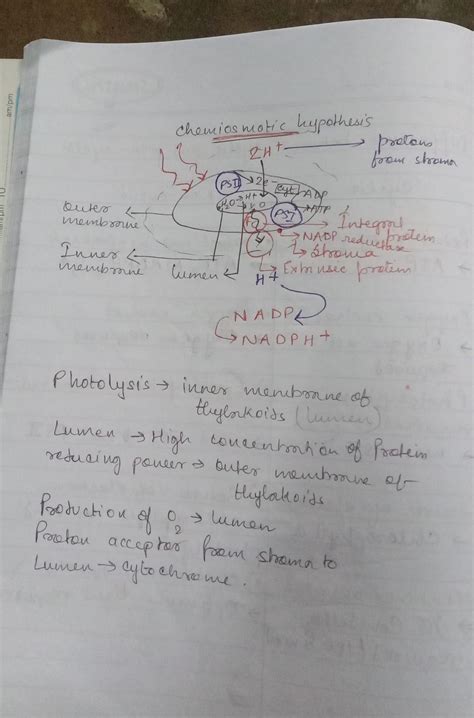 chemiosmotic hypothesis
2H+ → protons
from stroma
PSII → 2e-
cyt
ADP
H2O
H+
PSI
ATP
outer
membrane
Fo
Integral
protein
NADP reductase
Stroma
Inner
membrane
lumen
Extrinsic protein
H+
NADP
→ NADPH+
Photolysis → inner membrane of
thylakoids (lumen)
Lumen → High concentration of Protein
reducing power → outer membrane of
thylakoids
Production of O2 → lumen
Proton acceptor from stroma to
Lumen → cytochrome.